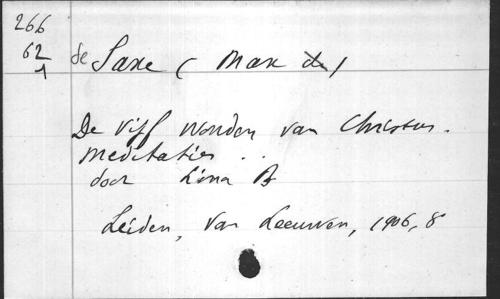 266
62
1
de Saxe ( Max de )
De vijf wonden van Christus.
meditaties . .
door Lina B
Leiden, Van Leeuwen, 1906, 8°